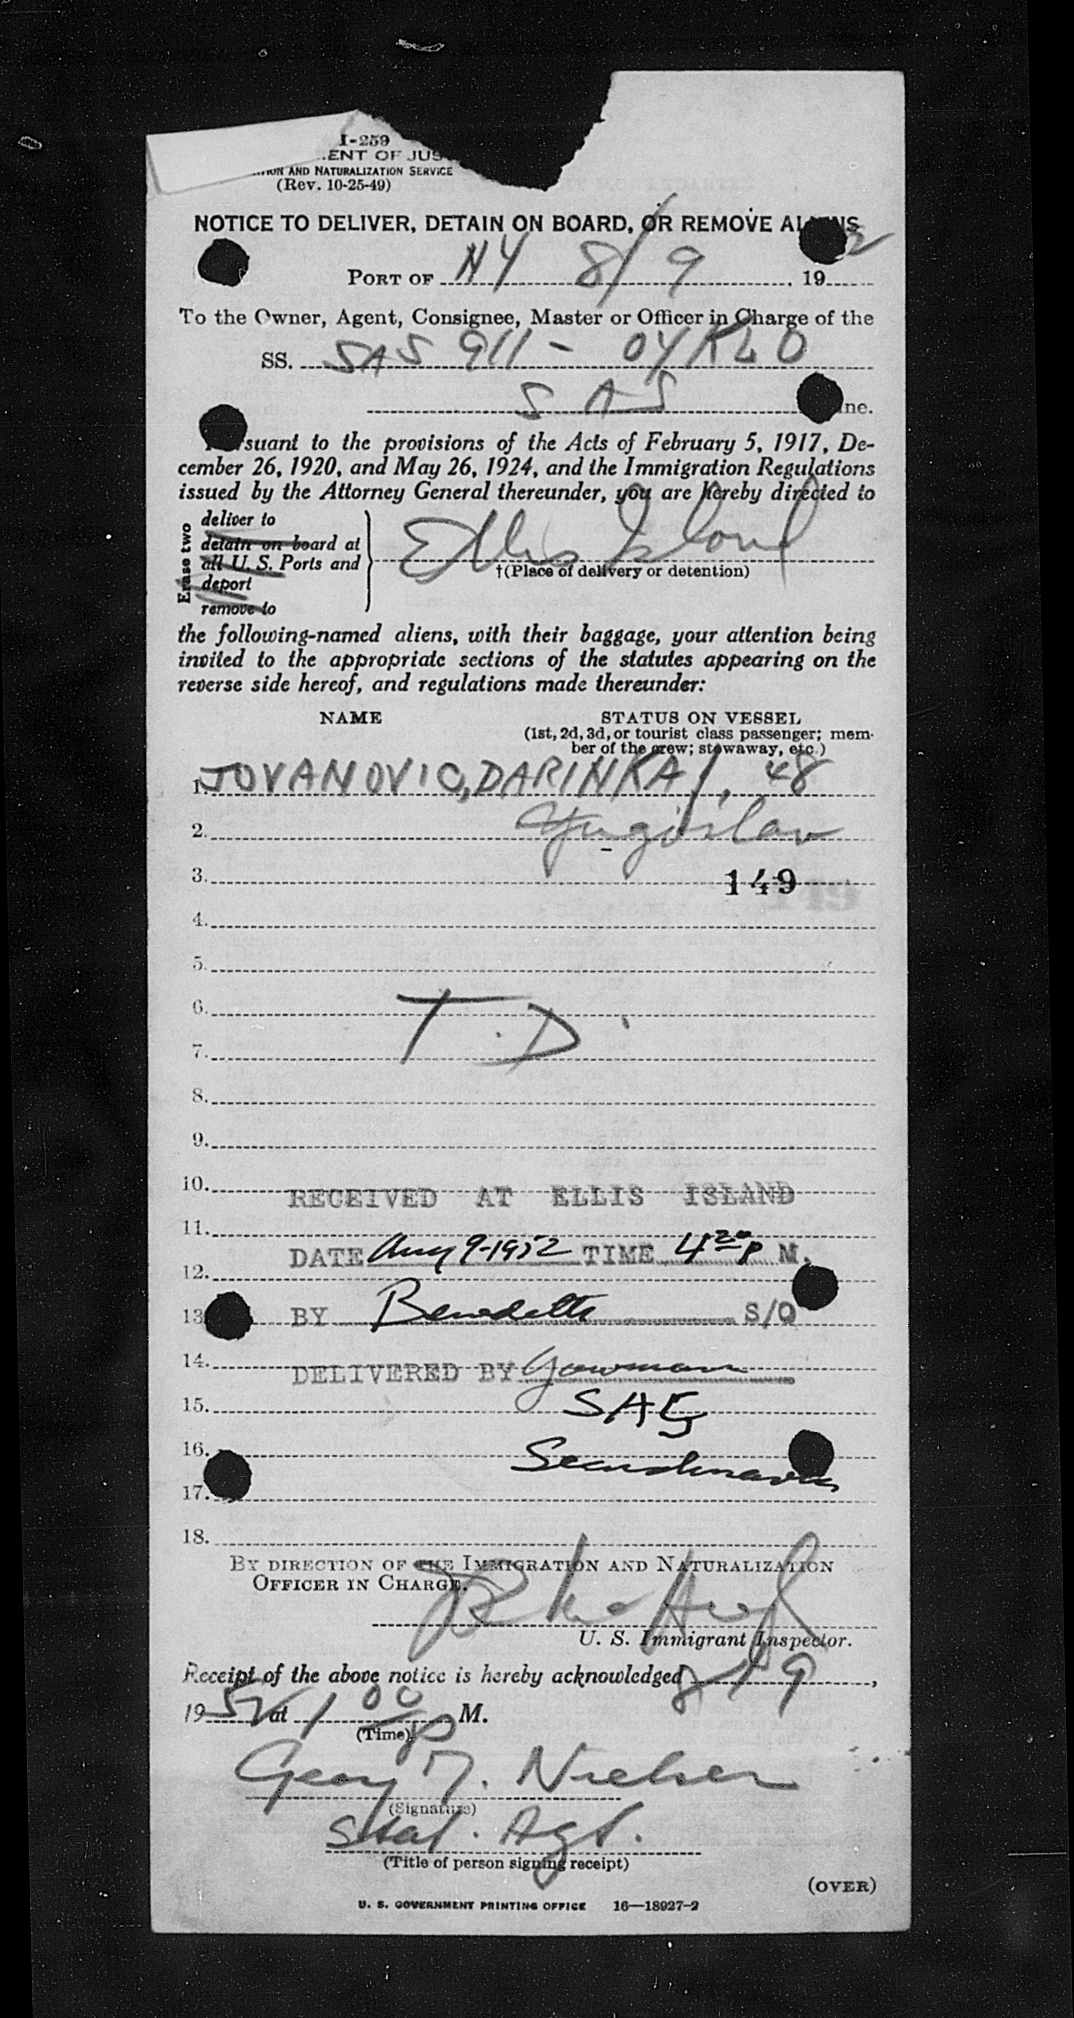 I-259
ENT OF JUS
ION AND NATURALIZATION SERVICE
(Rev. 10-25-49)
NOTICE TO DELIVER, DETAIN ON BOARD, OR REMOVE ALIENS
PORT OF NY 8/9 1952
To the Owner, Agent, Consignee, Master or Officer in Charge of the
SS. SAS 911 - OYKLO
SAS Line.
Pursuant to the provisions of the Acts of February 5, 1917, De-
cember 26, 1920, and May 26, 1924, and the Immigration Regulations
issued by the Attorney General thereunder, you are hereby directed to
Erase two
deliver to
detain on board at
all U. S. Ports and
deport
remove to
Ellis Island
†(Place of delivery or detention)
the following-named aliens, with their baggage, your attention being
invited to the appropriate sections of the statutes appearing on the
reverse side hereof, and regulations made thereunder:
NAME STATUS ON VESSEL
(1st, 2d, 3d, or tourist class passenger; mem-
ber of the crew; stowaway, etc.)
1. JOVANOVIC, DARINKA, 48
2. Yugoslav
3. 149
4.
5.
6. T.D.
7.
8.
9.
10. RECEIVED AT ELLIS ISLAND
11.
DATE Aug 9-1952 TIME 4 20 P M.
12.
13. BY Benedetto S/O
14. DELIVERED BY
15. SAS
16. Scandinavian
17.
18.
BY DIRECTION OF THE IMMIGRATION AND NATURALIZATION
OFFICER IN CHARGE.
U. S. Immigrant Inspector.
Receipt of the above notice is hereby acknowledged 8/9,
1952 at 1 00 P M.
(Time)
Nielsen
(Signature)
Stat. Agt.
(Title of person signing receipt)
(OVER)
U. S. GOVERNMENT PRINTING OFFICE 16—18927-2